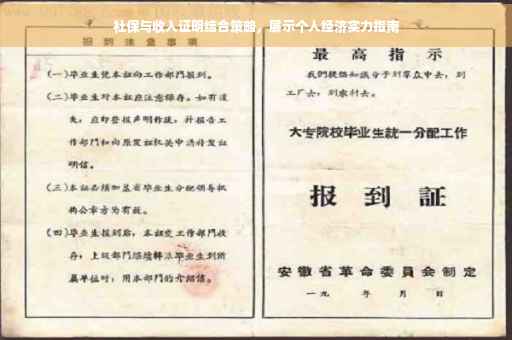 社保与收入证明综合策略，展示个人经济实力指南
报到注意事项
(一)毕业生凭本证向工作部门报到。
(二)毕业生对本证应注意保存。如有遗
失，应即登报声明作废，并报告工
作部门和向原发证机关申请补发证
明信。
(三)本证必须加盖省毕业生分配领导机
构公章方为有效。
(四)毕业生报到后，本证交工作部门收
存；上级部门
毕业生到所
属单位时，用本部门的介绍信。
最高指示
我们提倡知识分子到羣众中去，到
工厂去，到农村去。
大专院校毕业生統一分配工作
报到証
安徽省革命委員会制定
一九 年 月 日